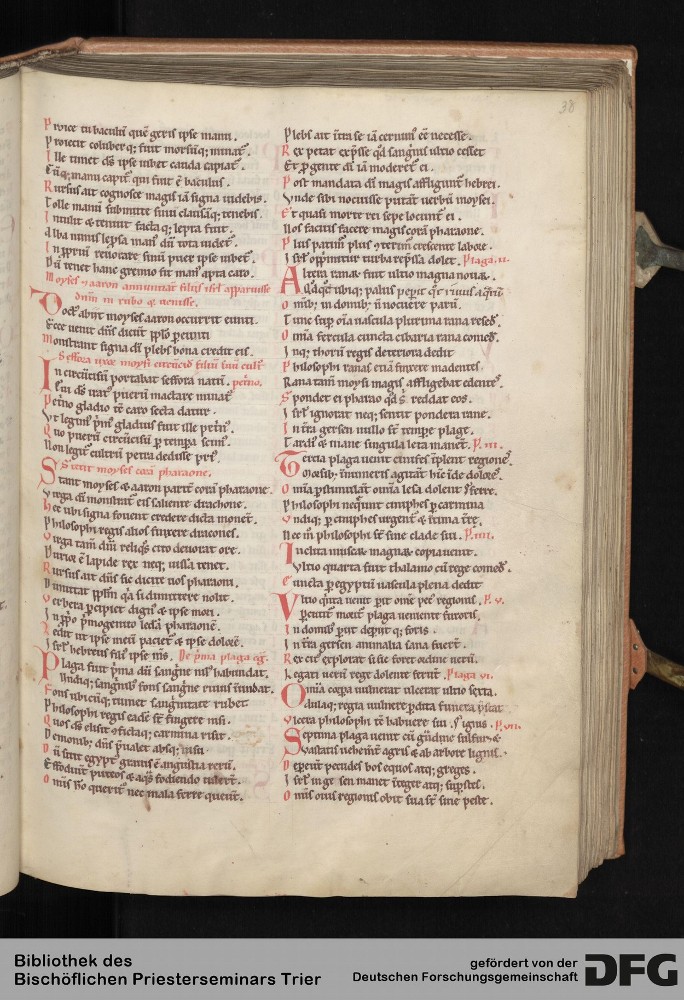 38
Proice tu baculũ quẽ geris ipse manu.
Proiecit coluber q; fuit morsuq; minat̃.
Ille timet dñs ipse iubet cauda capiat̃.
manu capit̃ qui fuit ẽ baculus.
Rursus ait cognosce magis iã signa iudebis.
Tolle manũ submitte sinu clausãq; tenebis.
Intulit & tenuit factaq; lepra fuit.
Alba nimis lepsa man dũ tota uidet̃.
In p̃priũ reuocare sinũ puer ipse iubet̃.
Dũ tenet hanc gremio fit man apta caro.
Moyses & aaron annuntiat filiis isrl apparuisse
dnm in rubo & uenisse.
Post abiit moyses aaron occurrit eunti.
Ecce uenit dñs dicũt pplo pereunti
Monstrant signa dñ plebs bona credit eis.
Seffora uxor moysi circũcid filium suũ cult̃
In circũcisũ portabat seffora natũ. petrino.
dñs irat puerũ mactare minat̃
Petrino gladio tẽ caro secta datur.
Ut legim p̃m gladius fuit ille petrin.
Quo puerũ circũcisũ p tempa scim.
Non legit cultrũ petra dedisse prĩ.
Stetit moyses corã pharaone.
Stant moyses & aaron parit̃ corã pharaone.
Virga dñ monstrat eis saliente drachone.
Hec ubi signa fouent credere dicta monet.
Philosophi regis alios finxere dracones.
Virga tam dñi reliqs cito deuorat ore.
Durior ẽ lapide rex neq; uissa tenet.
Rursus ait dñs sic dicite uos pharaoni.
Dimittat pplm qa si dimittere nolit.
Verbera percipiet digni & ipse mori.
In pplo p̃mogenito ledã pharaonẽ.
Redit ut ipse meũ paciet̃ & ipse dolorẽ.
Isrl hebreus fili ipse ms. De p̃ma plaga eg.
Plaga fuit p̃ma dũ sangne nil habundat.
Undiq; sanguinib fons sangne riuus inundat.
Fons ubicũq; tumet sanguinitate rubet
Philosophi regis eadẽ st fingere nisi.
Quos dñs elisit & factaq; carmina risit.
Demonib; dñs p̃ualet absq; nisu
Dñ sitit egypt grauis ẽ angustia rerũ.
Effodiunt puteos & aqs fodiendo tulert̃.
Omnis ho querit̃ nec mala ferre queunt.
Plebs ait ĩta se iã cernim eẽ necesse.
Rex petat exp̃sse qd sangnis ultio cesset
Et p gente dñ iã moderet̃ ei.
Post mandata dñi magis affligunt hebrei.
Unde sibi nocuisse putãt uerbũ moysei.
Et quasi morte rei sepe locunt̃ ei.
Nos facitis facere magis corã pharaone.
Plus patim plus & terim crescente labore.
Isrl opprimitur turba rep̃ssa dolet. Plaga .ii.
Altera ranar fuit ultio magna nouar.
Aqueq; ubiq; palus peperit qs riuus aqrũ
Omib; in domib; ñ nocuere parũ.
Tunc sup oĩa nascula plurima rana resed̃.
Omia fercula cuncta cibaria rana comed̃.
Inq; thorũ regis deteriora dedit
Philosophi ranas cũã finxere madentes
Rana tam moysi magis affligebat edentes.
Spondet ei pharao qd s reddat eos.
Isrl ignorat neq; sentit pondera rane.
In ĩra gersen nullo st tempe plage.
Tardi & mane singula leta manet. P. iii.
Tercia plaga uenit cinifes ĩplent regionẽ.
Boesib; inumeris agitat̃ hic ĩde dolorẽ.
Omia p̃stimulant omĩa lesa dolent ferre.
Philosophi nequeunt ciniphes p carmina
Undiq; p ciniphes urgent̃ & ĩtima ĩre.
Nec m philosophi st sine clade sui. P. iiii.
Inclita muscar magnar copia uenit.
Ultio quarta fuit thalamo cũ rege comed̃.
Cuncta p egyptũ nascula plena dedit
Ultio quĩta uenit p̃it om̃e pec regionis. P. V.
Vpereunt moriunt̃ plaga uenient̃ furoris.
In domib p̃it deperit q; foris.
In ĩra gersen animalia sana fuert̃.
Rex cũ explorat si sic foret ordine uerũ.
Legati uerũ rege dolente ferũt. Plaga VI.
Omia corpa uulnerat ulcerat ultio sexta.
Odulaq; regia uulnere p̃dita funera p̃stat
Ulcera philosophi tẽ habuere sui. ignis. P. VII.
Septima plaga uenit cũ gndine sulfur &
Uastatis uehemt̃ agris & ab arbore lignis.
Depereũt pecudes bos equos atq; greges.
Isrl in gesen manet ĩteger atq; supstes.
Omis ouis regionis obit sua st sine peste.
Bibliothek des
Bischöflichen Priesterseminars Trier
gefördert von der
Deutschen Forschungsgemeinschaft
DFG